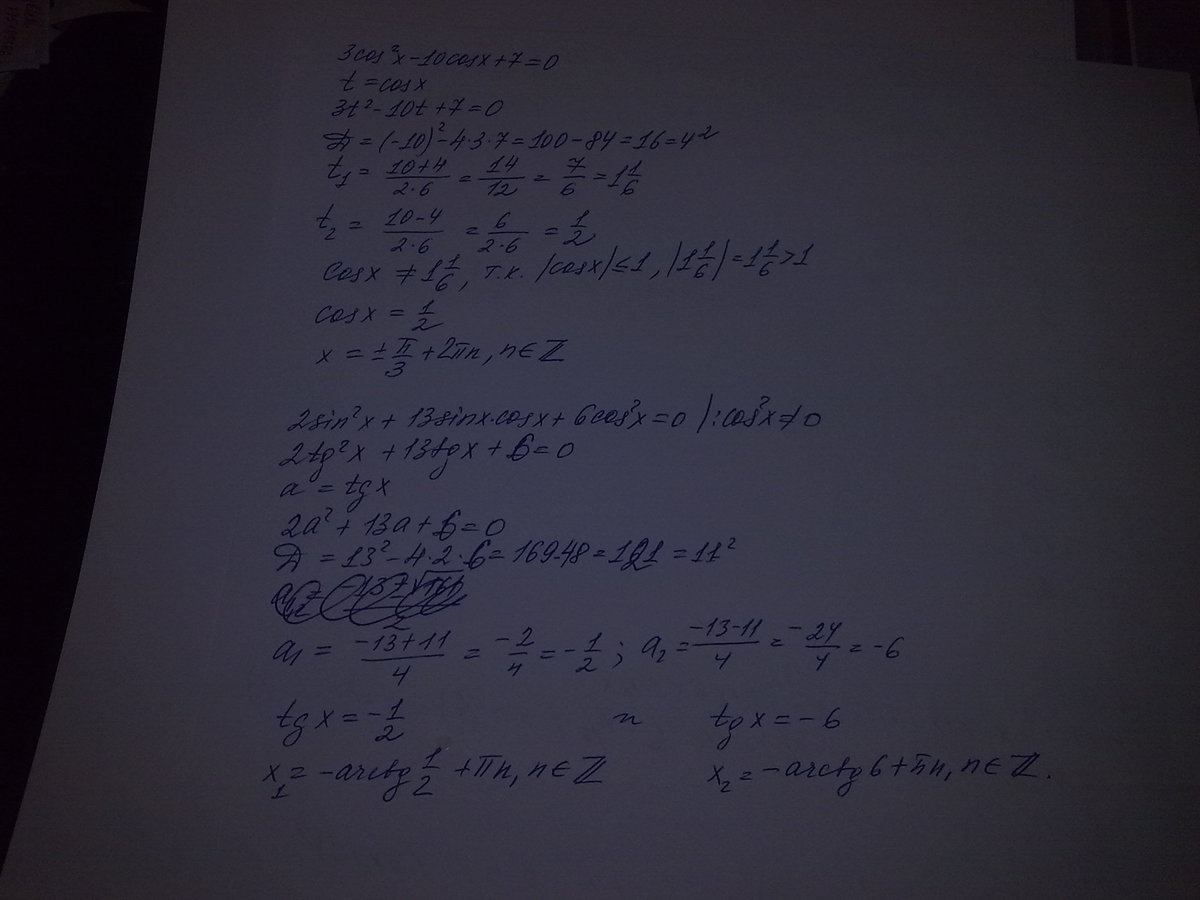 3cos²x-10cosx+7=0
t=cosx
3t²-10t+7=0
D=(-10)²-4·3·7=100-84=16=4²
t₁=(10+4)/(2·6)=14/12=7/6=1 1/6
t₂=(10-4)/(2·6)=6/(2·6)=1/2
cosx≠1 1/6, т.к. |cosx|≤1, |1 1/6|=1 1/6>1
cosx=1/2
x=±π/3+2πn, n∈ℤ
2sin²x+13sinx·cosx+6cos²x=0 |:cos²x≠0
2tg²x+13tgx+6=0
a=tgx
2a²+13a+6=0
D=13²-4·2·6=169-48=121=11²
a₁=(-13+11)/4=-2/4=-1/2; a₂=(-13-11)/4=-24/4=-6
tgx=-1/2 и tgx=-6
x₁=-arctg 1/2+πn, n∈ℤ x₂=-arctg6+πn, n∈ℤ.